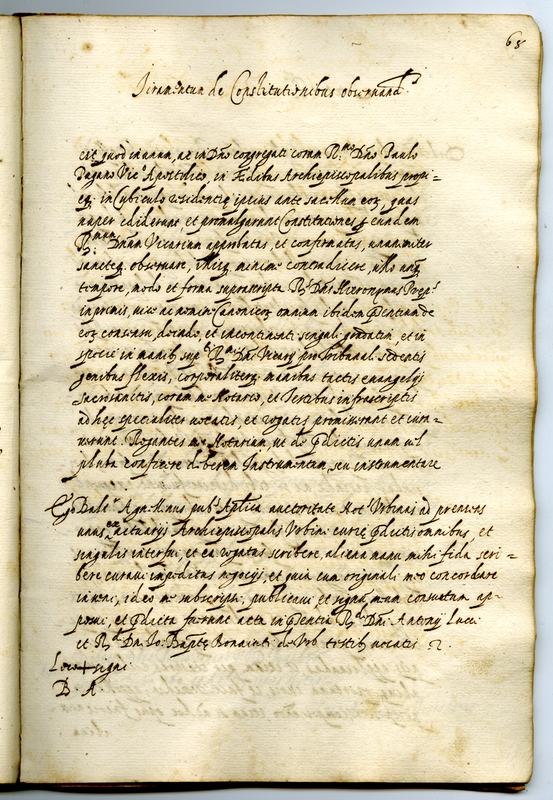 65
Juramentum de Constitutionibus obseruand.s
est quod in unum, ac in Dño congregati coram R.mo Dño Paulo
Pagano Vic.o Apostolico, in Ædibus Archiepiscopalibus propi=
eq. in Cubiculo residentię ipsius ante sac. eoq, quas
nuper ediderunt et promulgarunt Constitutiones p eundem
R.mum Dñum Vicarium approbatas, et confirmatas, unanimiter
sancteq. obseruare, illisq. minime contradicere ullo unq.
tempore, modo et forma suprascripta R.s Dñs Hieronymus Prep.s
in primis, uice ac nomine Canonicor. omnium ibidem pñtium de
eor. consensu, deinde, et incontinenti singuli gradatim, et in
specie in manib. sup.ti R.mi Dñi Vicarij pro Tribunali sedentis
genibus flexis, corporaliterq. manibus tactis euangelijs
sacrosanctis, coram me Notario, et Testibus infrascriptis
ad hęc specialiter uocatis, et rogatis promiserunt et iura=
uerunt. Rogantes me Notarium, ut de pdictis unum uel
plura conficere deberem Instrumentum, seu instrumenta
Ego Balt.r pub.s Aplica auctoritate Not.s Urbinas ad presens
unus ex actuarijs Archiepiscopalis Urbini curię pdictis omnibus, et
singulis interfui, et ea rogatus scribere, aliena manu mihi fida scri=
bere curaui impeditus negocijs, et quia cum originali meo concordare
inueni, ideo me subscripsi, publicaui et signũ meum consuetum ap=
posui, et pdicta fuerunt acta in pñtia R.di Dñi Antonij Lucci
et R.di Dñi Jo: Baptę Bonauenti de Urb. testib. uocatis
Loco + signi
B. A.